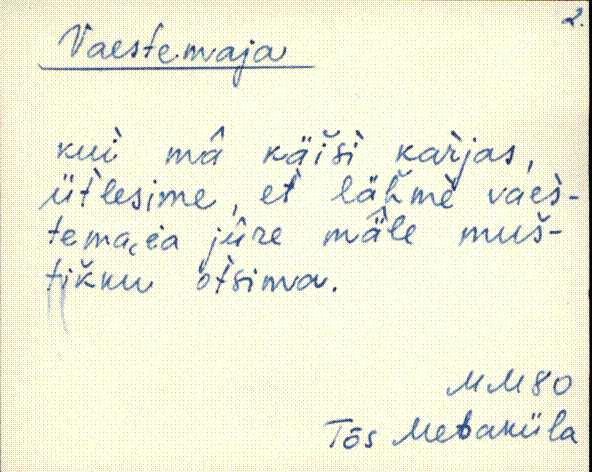 2.
Vaestemaja
kui mâ käiši kàrjas,
üt̀lesime, et̀ lähme vaès-
tema,ea jûre mäle muš-
tikku òtsima.
MM80
Tõs Metsaküla